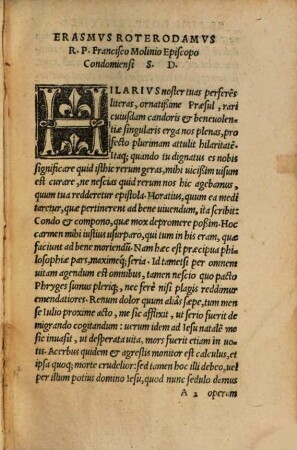 ERASMVS ROTERODAMVS
R. P. Francisco Molinio Episcopo
Condomiensi S. D.
HILARIVS noster tuas perferẽs
literas, ornatissime Præsul, rari
cuiusdam candoris & beneuolen
tiæ singularis erga nos plenas, pro
fecto plurimam attulit hilaritatẽ
itaq; quando tu dignatus es nobis
significare quid isthic rerum geras, mihi uicißim uisum
est curare, ne nescias quid rerum nos hic agebamus,
quum tua redderetur epistola. Horatius, quum ea medi
taretur, quæ pertinerent ad bene uiuendum, ita scribit:
Condo & compono, quæ mox depromere poßim. Hoc
carmen mihi iustius usurparo, qui tum in his eram, quæ
faciunt ad bene moriendũ. Nam hæc est præcipua phi
losophiæ pars, maximeq́; seria. Id tametsi per omnem
uitam agendum est omnibus, tamen nescio quo pacto
Phryges sumus pleriq;, nec ferè nisi plagis reddimur
emendatiores. Renum dolor quum aliàs sæpe, tum men
se Iulio proxime acto, me sic afflixit, ut serio fuerit de
migrando cogitandum: uerum idem ad Iesu natalẽ me
sic inuasit, ut desperata uita, mors fuerit etiam in uo⸗
tis. Acerbus quidem & agrestis monitor est calculus, et
ipsa quoq; morte crudelior: sed tamen hoc illi debeo, uel
per illum potius domino Iesu, quod nunc sedulo damus
A 2 operam